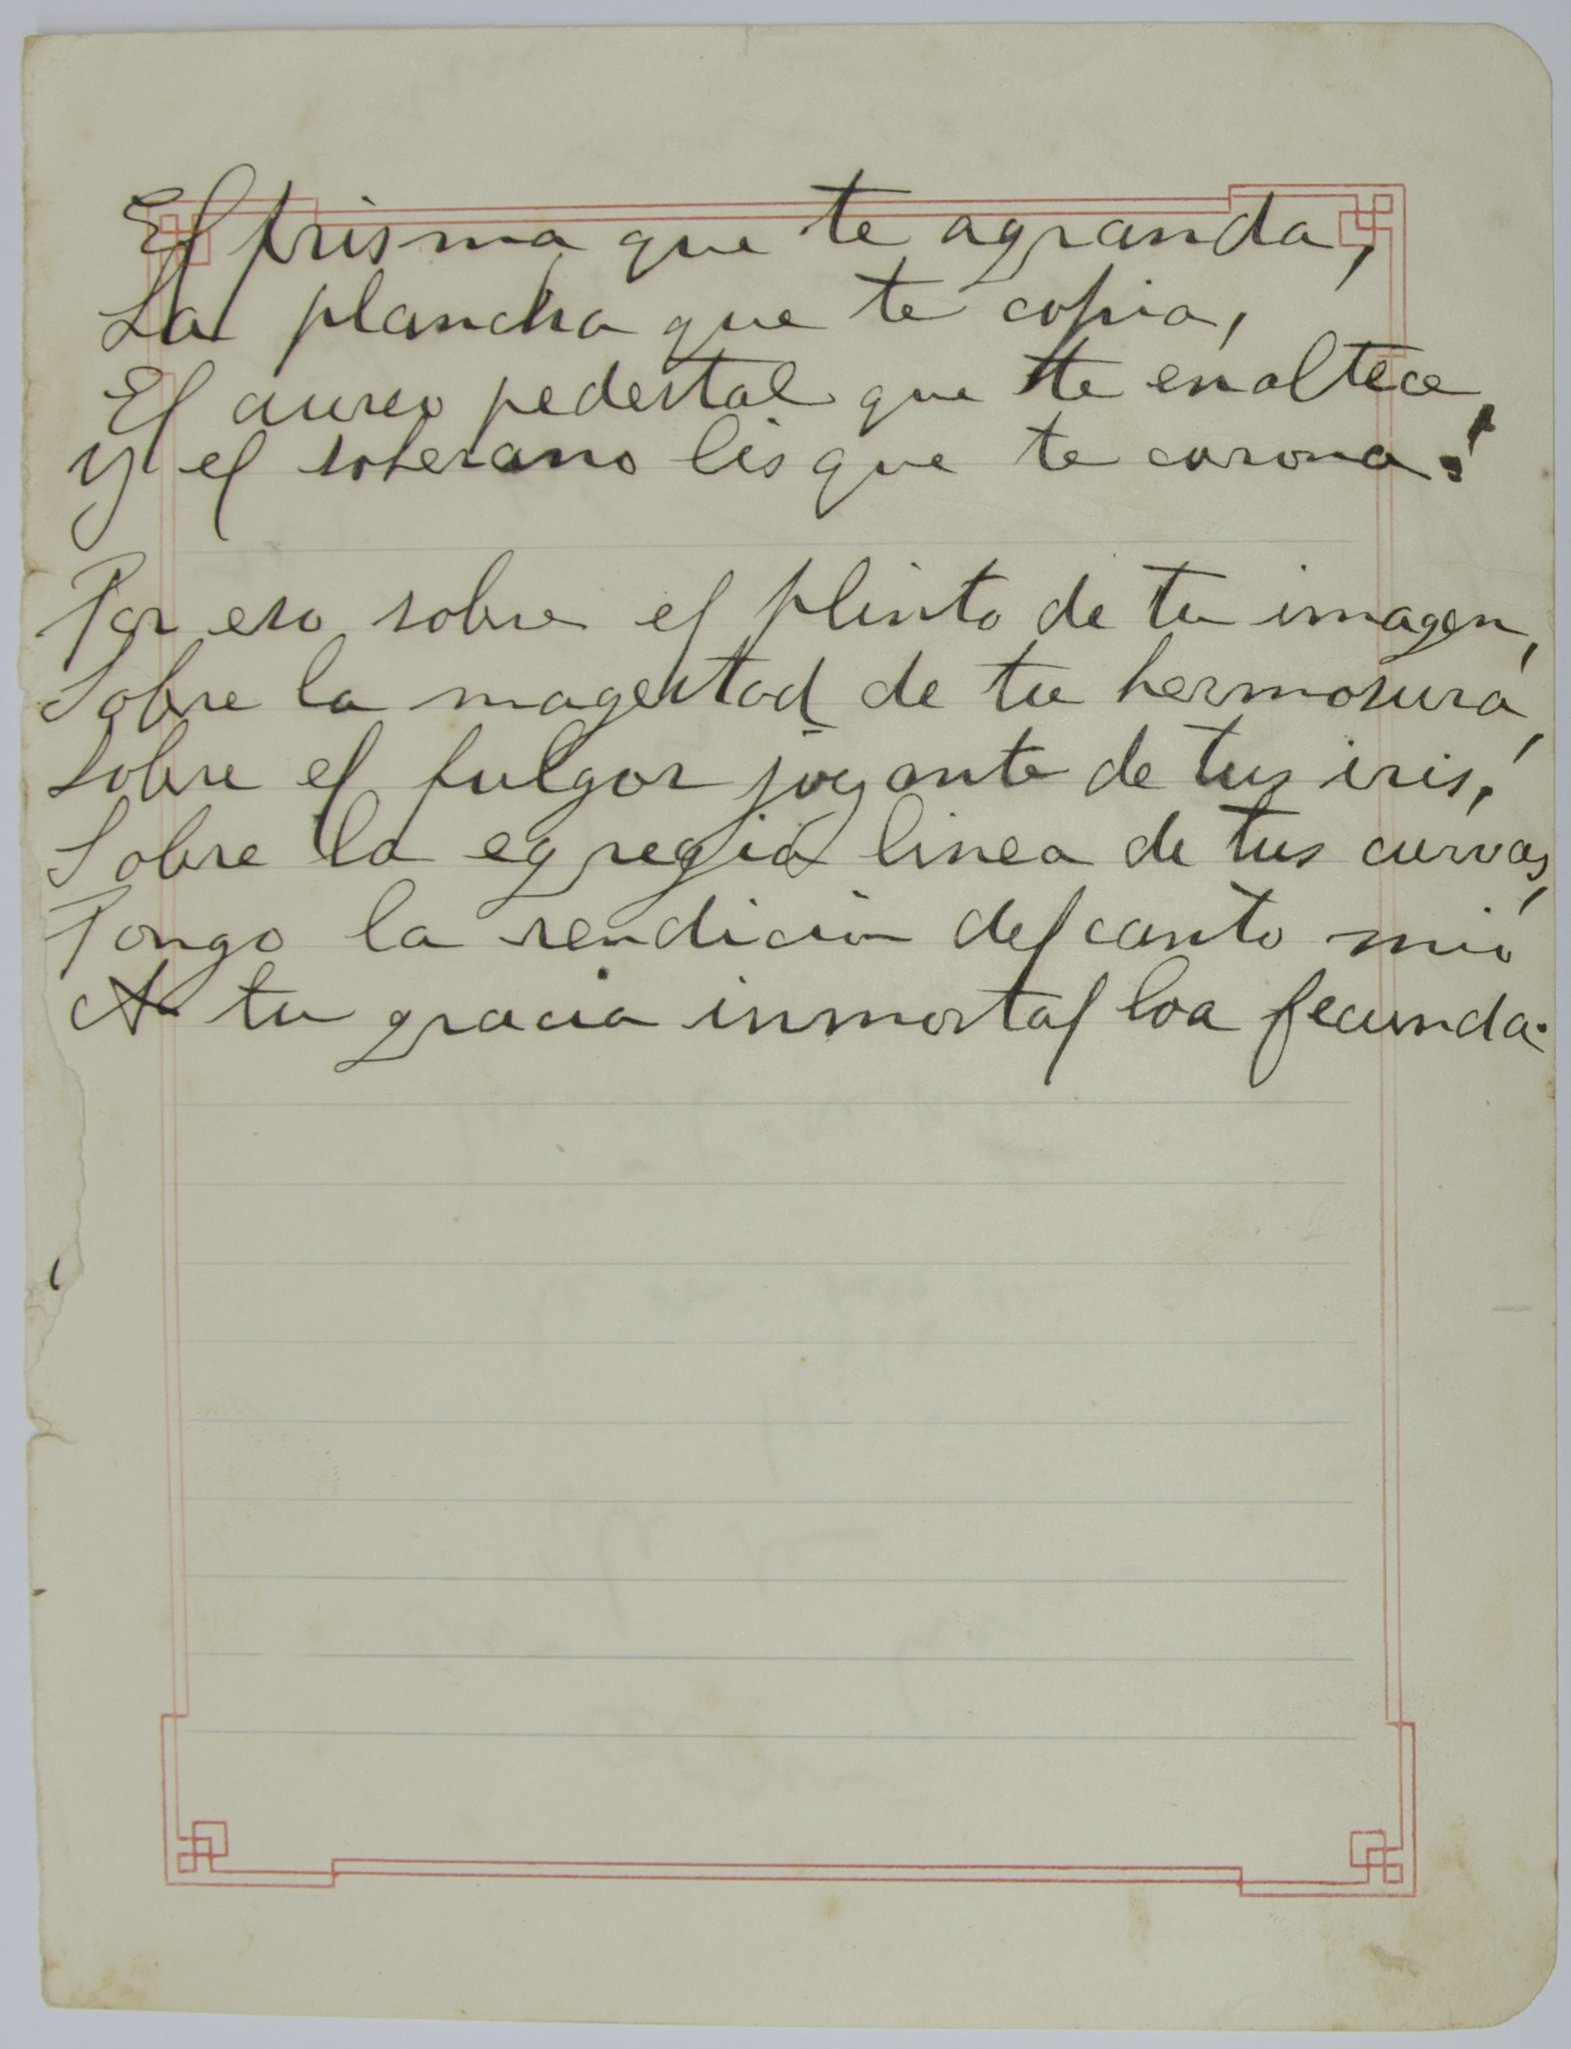 El prisma que te agranda,
La plancha que te copia,
El aureo pedestal que te enaltece,
y el soberano lis que te corona!
Por eso sobre el plinto de tu imagen,
Sobre la magestad de tu hermosura,
Sobre el fulgor joyante de tus iris,
Sobre la egregia linea de tus curvas,
Pongo la rendicion del canto mío
A tu gracia inmortal loa fecunda.